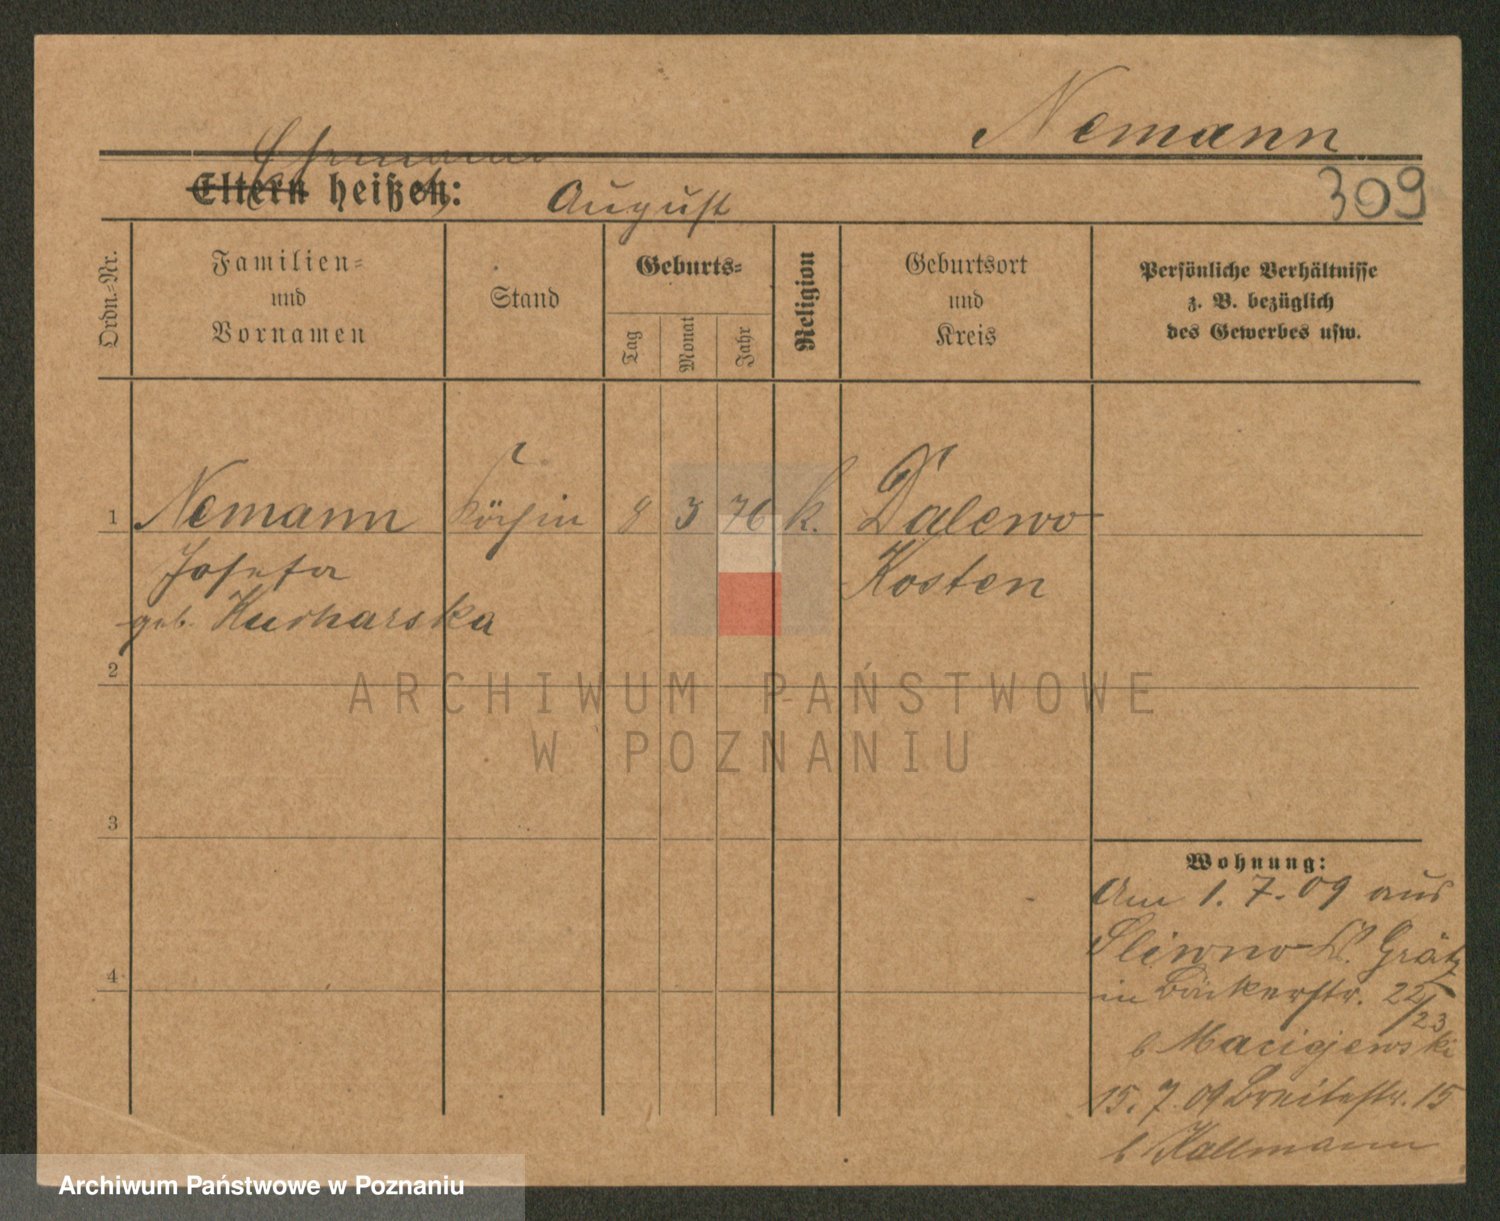 Nemann
Ehemann
Eltern heißen: August
309
Ordn.-Nr.
Familien-
und
Vornamen
Stand
Geburts-
Tag
Monat
Jahr
Religion
Geburtsort
und
Kreis
Persönliche Verhältnisse
z. B. bezüglich
des Gewerbes usw.
1 Nemann Köchin 8 3 76 k. Dalewo
Josefa Kosten
geb. Kucharska
2
ARCHIWUM PAŃSTWOWE
W POZNANIU
3
Wohnung:
Am 1.7.09 aus
Sliwno Kr. Grätz
in Bäckerstr. 22/23
b Maciejewski
15.7.09 Breitestr. 15
b Kallmann
4
Archiwum Państwowe w Poznaniu